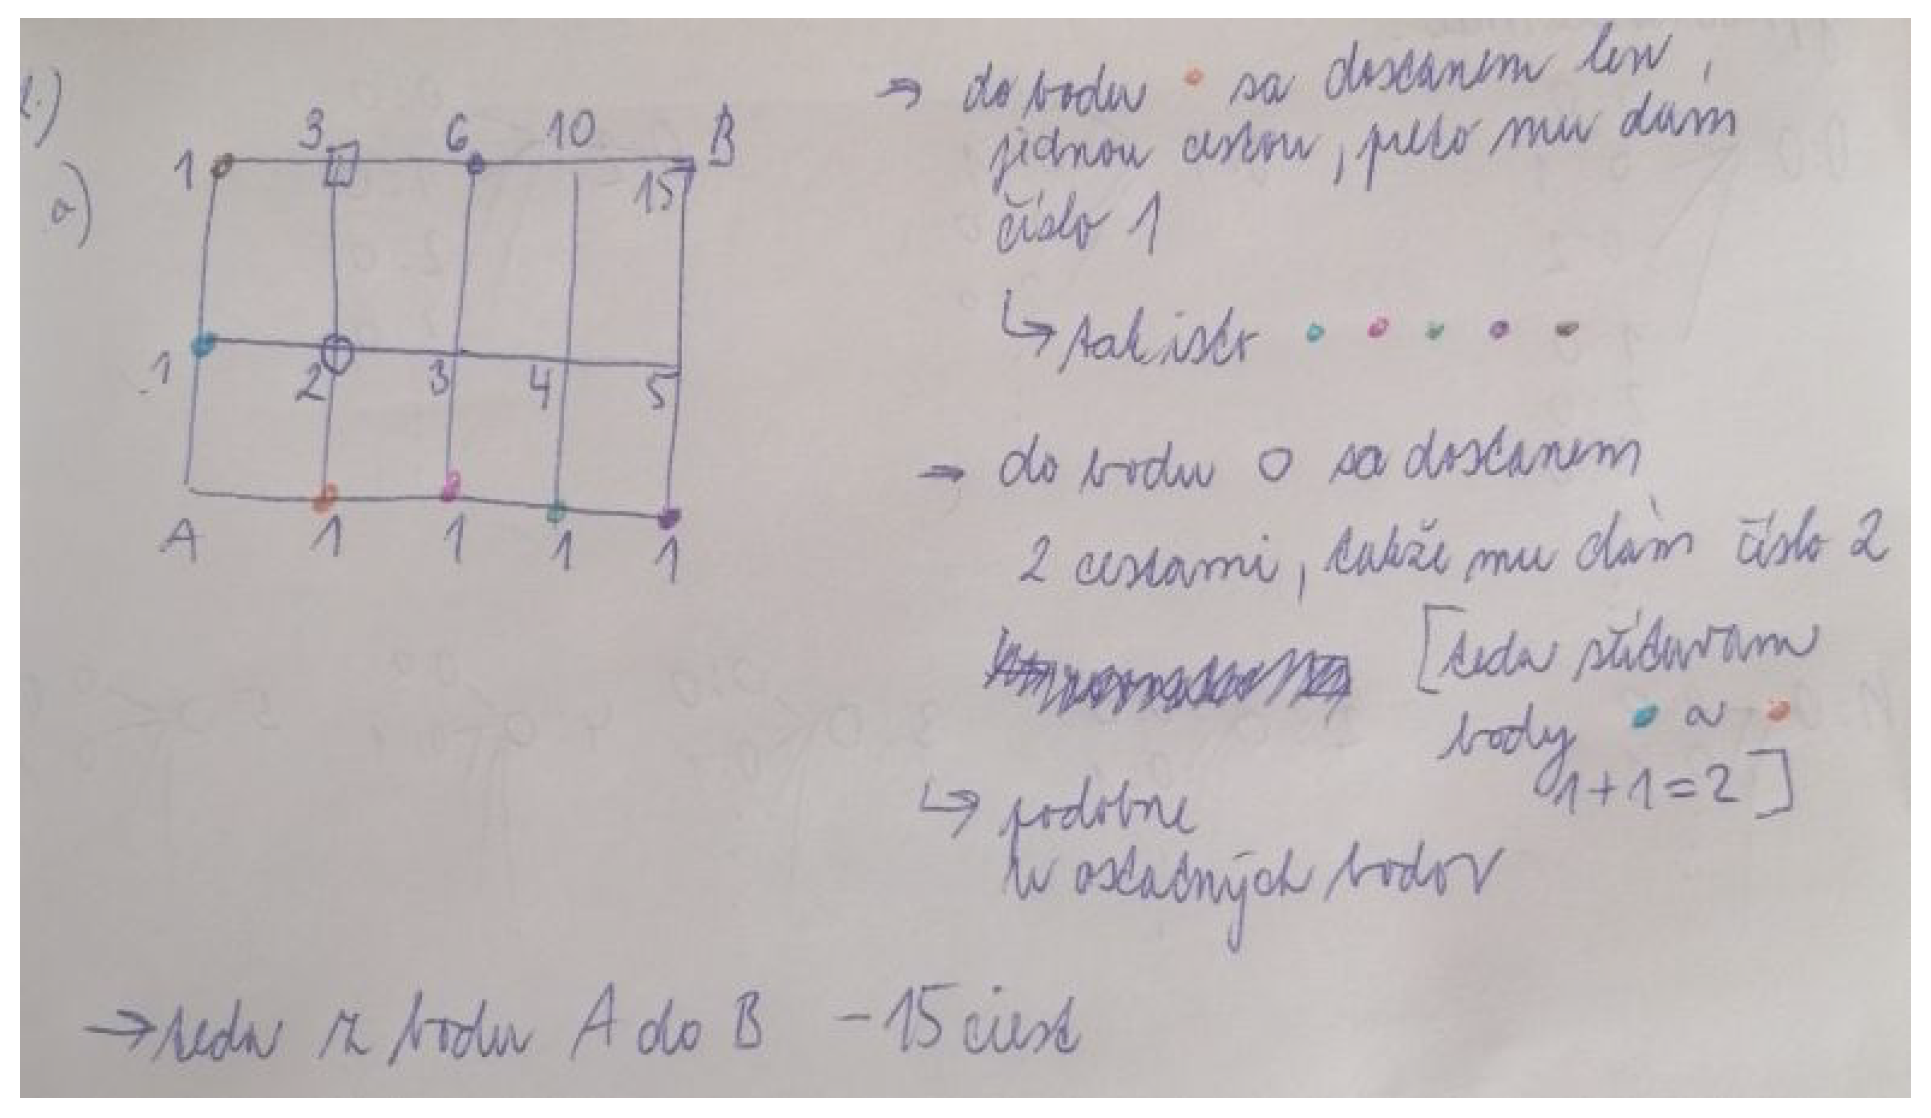 2.)
a)
1 3 6 10 B
15
1 2 3 4 5
A 1 1 1 1
→ do bodu • sa dostanem len
jednou cestou, preto mu dám
číslo 1
↳ takisto • • • • •
→ do bodu O sa dostanem
2 cestami, takže mu dám číslo 2
[teda sčítavam
body • a •
1+1=2]
↳ podobne
u ostatných bodov
→ teda z bodu A do B - 15 ciest